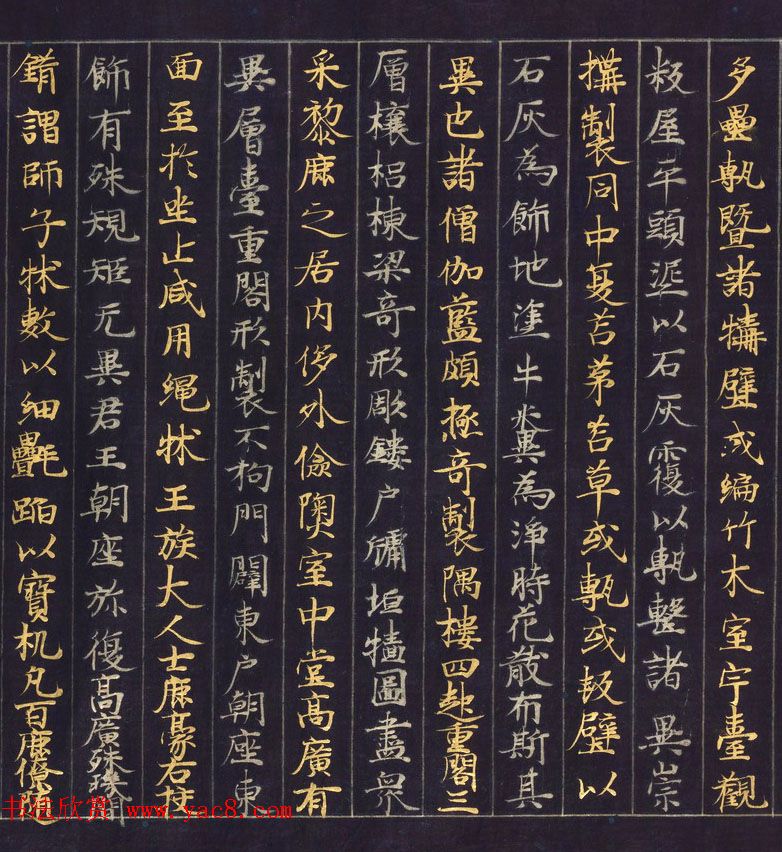 多疊甎暨諸墻壁或編竹木室宇臺觀
板屋平頭埿以石灰覆以甎墼諸異崇
搆製同中夏苫茅苫草或甎或板壁以
石灰為飾地塗牛糞為淨時花散布斯其
異也諸僧伽藍頗極奇製隅樓四起重閣三
層榱梠棟梁奇形彫鏤户牖垣牆圖畫眾
采黎庶之居内侈外儉隩室中堂髙廣有
異層臺重閣形製不拘門闢東户朝座東
面至於坐止咸用繩牀王族大人士庶豪右莊
飾有殊規矩无異君王朝座弥復髙廣珠璣間
錯謂師子牀敷以細㲲蹈以寶机凡百庶僚隨
书法欣赏 www.yac8.com